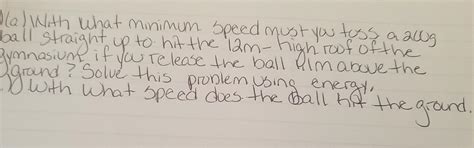 (a) With what minimum speed must you toss a 210g
ball straight up to hit the 12m-high roof of the
gymnasium if you release the ball 1.1m above the
ground? Solve this problem using energy.
) With what speed does the ball hit the ground.